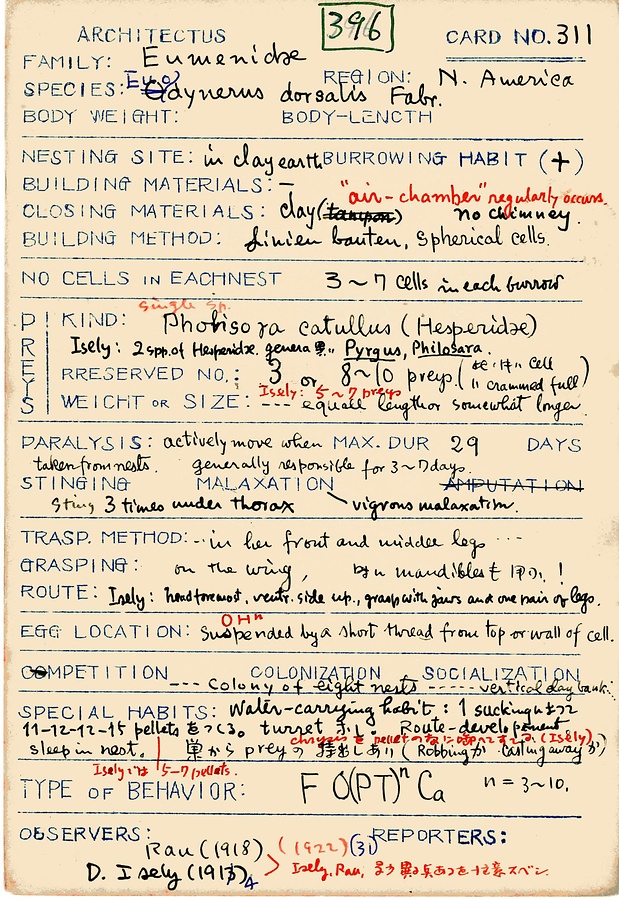 396
ARCHITECTUS
CARD NO. 311
FAMILY: Eumenidae
SPECIES: Euo Odynerus dorsalis Fabr.
REGION: N. America
BODY WEIGHT: BODY-LENGTH
NESTING SITE: in clay earth BURROWING HABIT (+)
BUILDING MATERIALS: —
"air-chamber" regularly occurs.
CLOSING MATERIALS: clay (tampon) no chimney.
BUILDNG METHOD: Linienbauten, Spherical cells.
NO CELLS IN EACHNEST 3~7 cells in each burrow
single sp.
PREYS
KIND: Pholisora catullus (Hesperidae)
Isely: 2 spp. of Hesperidae. genera 異.. Pyrgus, Philosara.
RRESERVED NO.: 3 or 8~10 preys. ( cell
〃 crammed full)
Isely: 5~7 preys
WEIGHT OR SIZE: --- equall length or somewhat longer
PARALYSIS: actively move when MAX. DUR 29 DAYS
taken from nests. generally responsible for 3~7 days.
STINGING MALAXATION AMPUTATION
Sting 3 times under thorax vigrous malaxation.
TRASP. METHOD: -- in her front and middle legs ---
GRASPING: on the wing, mandibles !
ROUTE: Isely: head foremost, ventr. side up., grasp with jaws and one pair of legs.
OHn
EGG LOCATION: Suspended by a short thread from top or wall of cell.
COMPETITION COLONIZATION SOCIALIZATION
--- Colony of eight nests ----- vertical clay bank.
SPECIAL HABITS: Water-carrying habit: 1 sucking
11-12-12-15 pellets をつくる。 turret ナシ. Route-development
chrysis pellet (Isely)
sleep in nest. 巣から prey の持出しあり (Robbing か Casting away か)
Isely: では 5~7 pellets.
TYPE OF BEHAVIOR: F O(PT)ⁿ Ca n = 3~10.
OBSERVERS: REPORTERS:
Rau (1918) (1922) (31)
D. Isely (1913) 4
Isely, Rau,